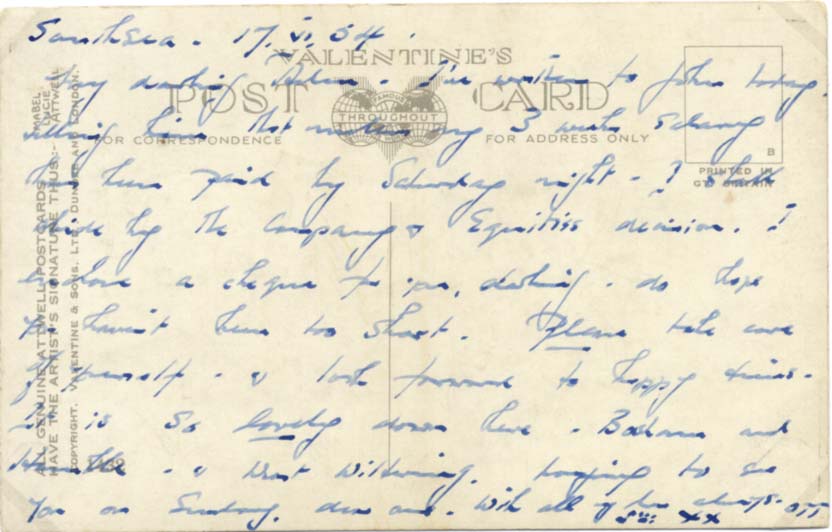 Southsea. 17.vi.54.
My darling . I've written to John today
telling him that unless my 3 weeks salary
has been paid by Saturday night - I shall
abide by the Company & Equities decision. I
enclose a cheque for you, darling - do hope
you haven't been too short. Please take care
of yourself - & look forward to happy times.
It is so lovely down here - Bosham and
& West Wittering. Hoping to see
you on Sunday, dear one. With all of me always -
xx
VALENTINE'S
POST CARD
FAMOUS
THROUGHOUT
FOR CORRESPONDENCE
FOR ADDRESS ONLY
B
PRINTED IN
GT. BRITAIN
ALL GENUINE ATTWELL POSTCARDS
HAVE THE ARTIST'S SIGNATURE THUS:-
MABEL
LUCIE
ATTWELL
COPYRIGHT. VALENTINE & SONS. LTD. DUNDEE AND LONDON.